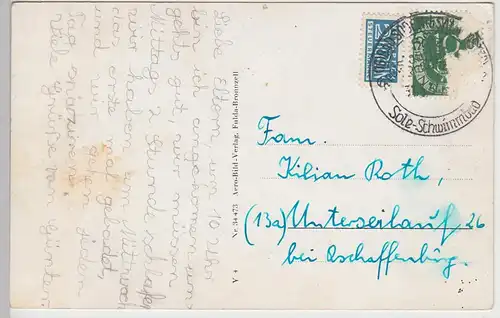 Liebe Eltern, um 10 Uhr
bin ich angekommen uns
gehts gut, wir müssen
Mittags 2 Stunde schlafen
wir haben am Mittwoch
das erste mal gebadet
und wir gehen jeden
Tag spazieren
viele Grüße von Günter
Nr. 34 473 Aero-Bild-Verlag, Fulda-Bronnzell
V 4
NOTOPFER
2
BERLIN
Sole-Schwimmbad
Fam.
Kilian Roth,
(13a) Unterseilauf, 26
bei Aschaffenburg.